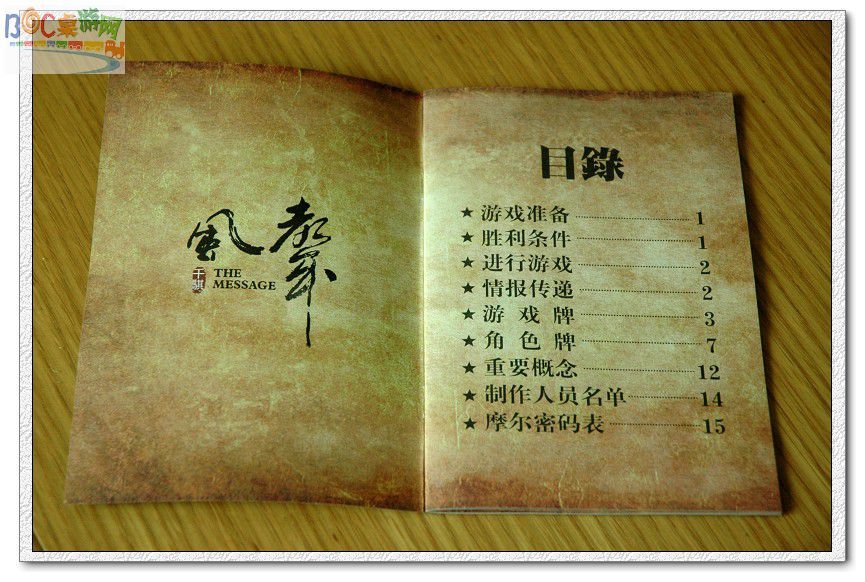 BGC桌游网
風聲
千騏
THE
MESSAGE
目錄
★ 游戏准备 1
★ 胜利条件 1
★ 进行游戏 2
★ 情报传递 2
★ 游戏牌 3
★ 角色牌 7
★ 重要概念 12
★ 制作人员名单 14
★ 摩尔密码表 15